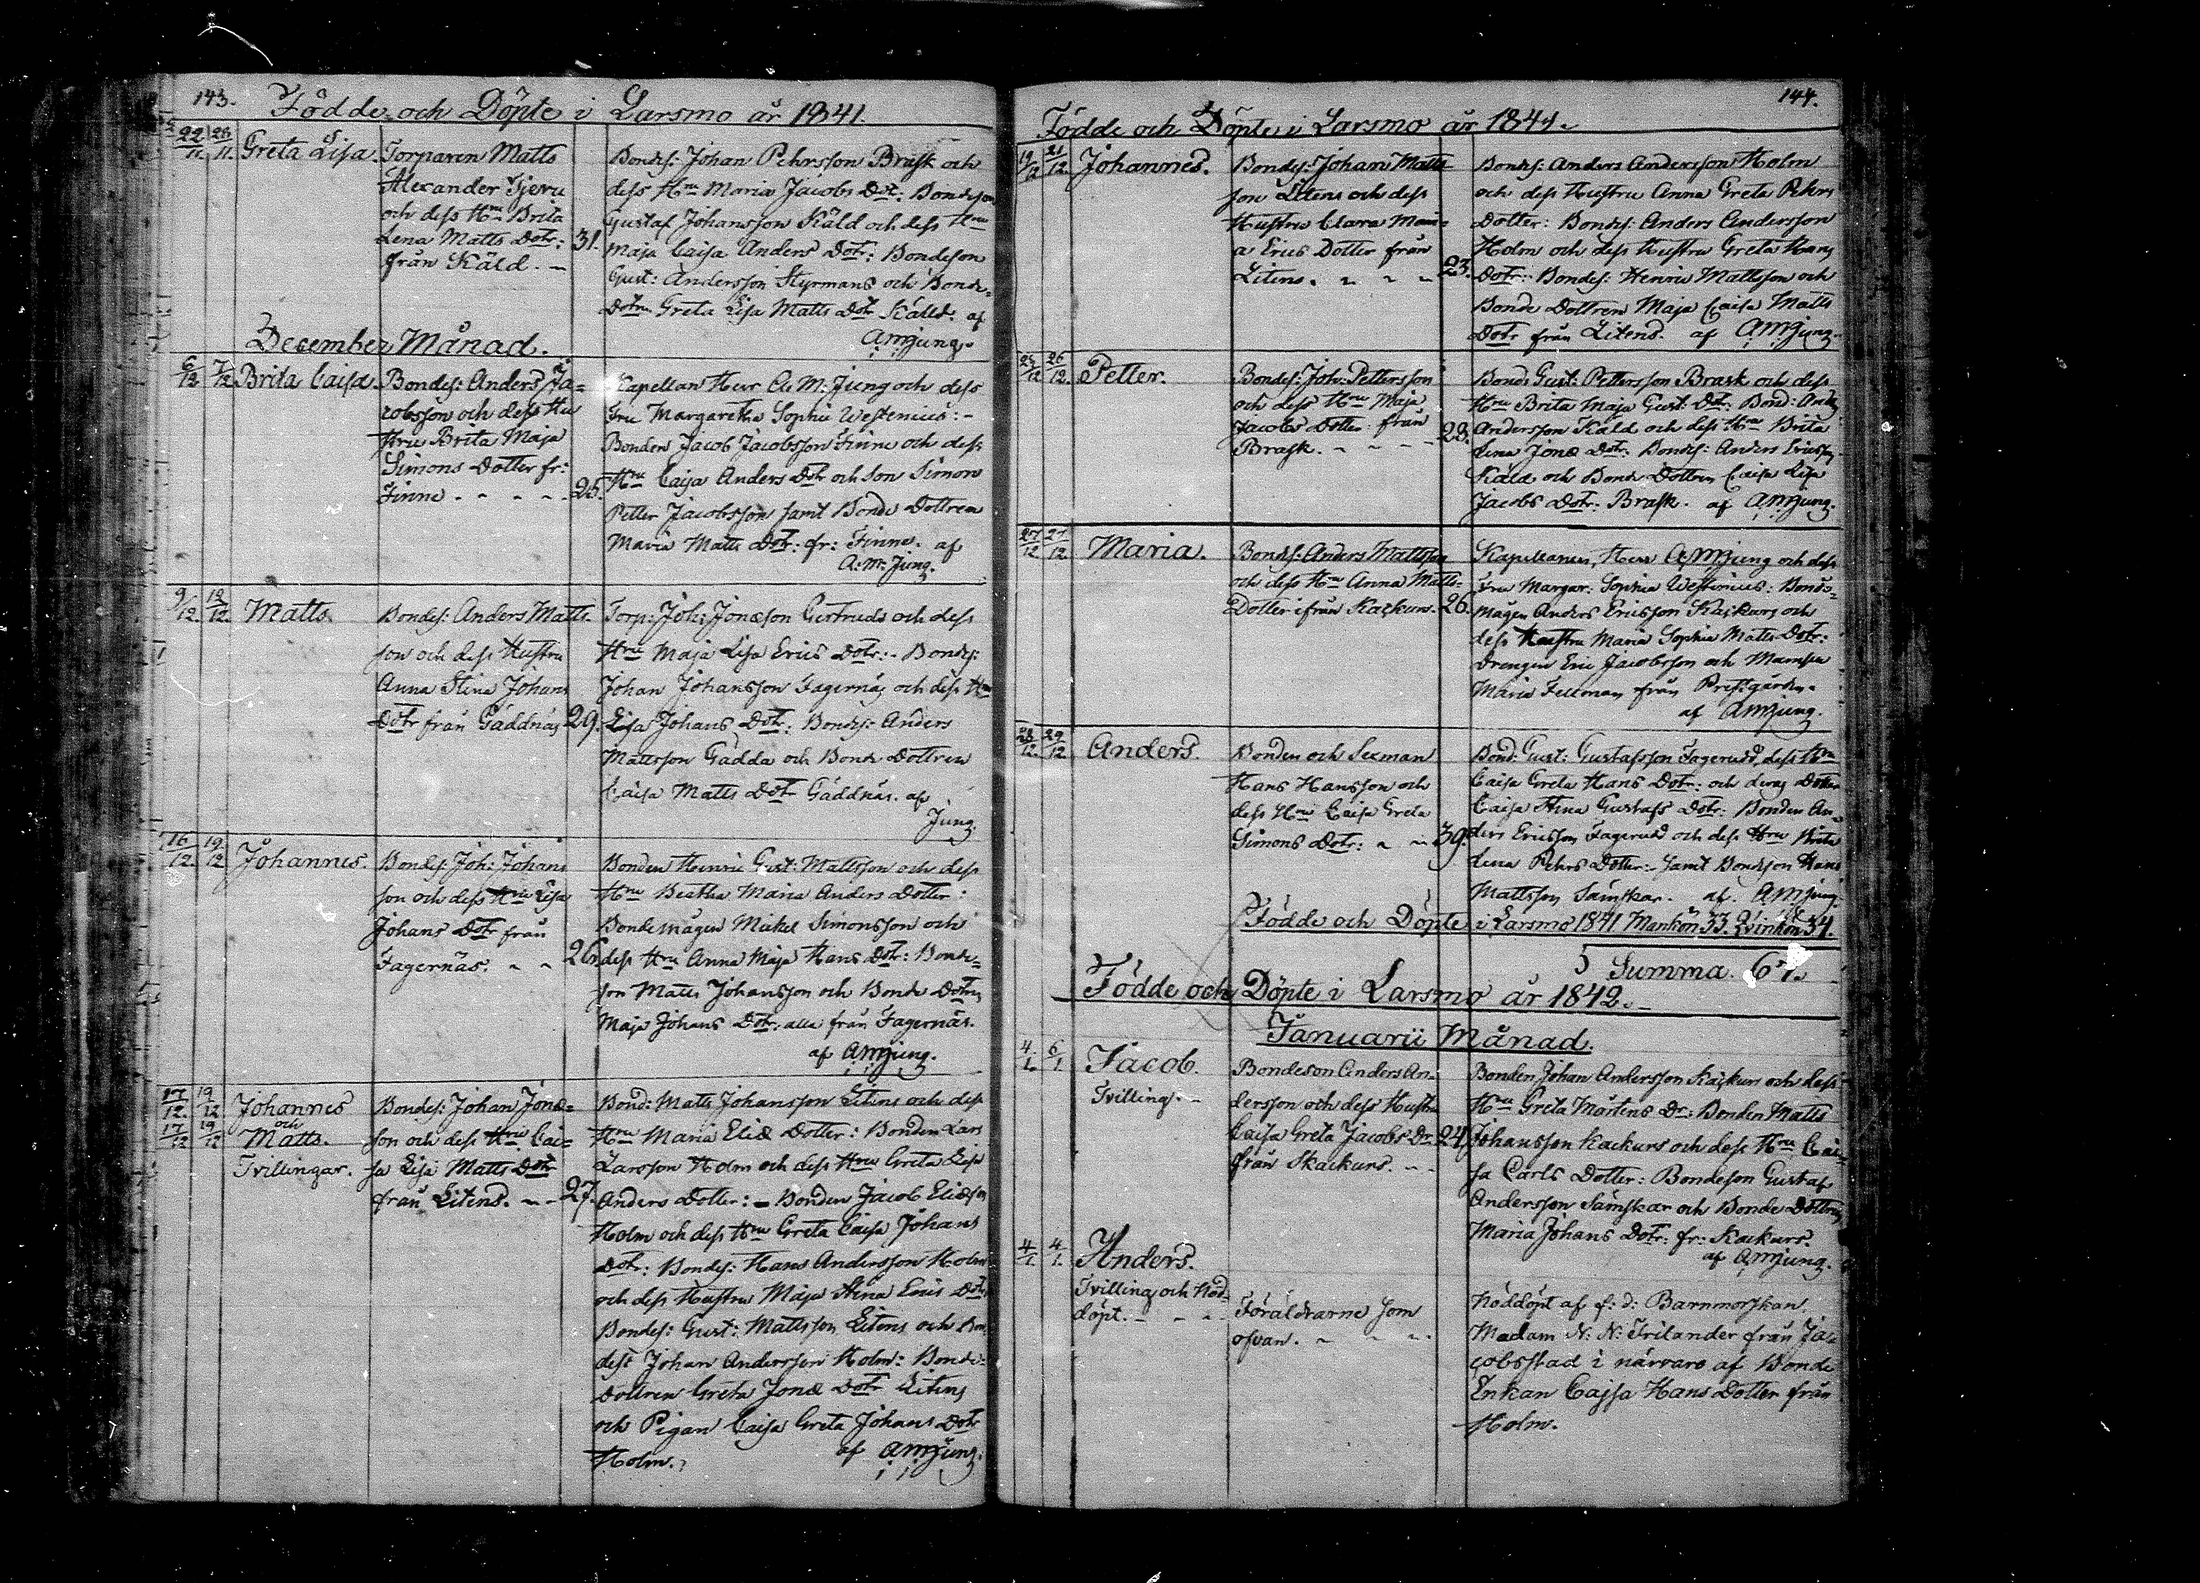 143.
Födde och Döpte i Larsmo år 1841.
22/11. 28/11. Greta Lisa.
Torparen Matts
Alexander Gjeru
och dess Hru Brita
Lena Matts Dotr: 31.
från Käld. –
Bondes: Johan Pehrsson Brask och
dess Hru Maria Jacobs Dotr: Bondeson
Gustaf Johansson Käld och dess Hru
Maja Caisa Anders Dotr: Bondeson
Gust: Andersson Styrmans och Bonde-
Dotren Greta Lisa Matts Dotr Käld: af
AMJung.
December Månad.
6/12 7/12 Brita Caisa.
Bondes: Anders Ja-
cobsson och dess Hu
stru Brita Maja
Simons Dotter fr:
Finne. - - - - 25.
Kapellan Herr A. M. Jung och dess
Fru Margaretha Sophie Westenius: -
Bonden Jacob Jacobsson Finne och dess
Hru Caisa Anders Dotr och son Simon
Petter Jacobsson samt Bonde Dottren
Maria Matts Dotr: fr: Finne. af
A: M: Jung.
9/12. 12/12. Matts.
Bondes: Anders Matts-
son och dess Hustru
Anna Stina Johans
Dotr från Gäddnäs 29.
Torp: Joh: Jonæson Gertruds och dess
Hru Maja Lisa Erics Dotr: - Bondes:
Johan Johansson Fagernäs och dess Hru
Lisa Johans Dotr: Bondes: Anders
Mattsson Gädda och Bonde Dottren
Caisa Matts Dotr Gäddnäs. af
Jung.
16/12. 19/12 Johannes.
Bondes: Joh: Johans
son och dess Hru Lisa
Johans Dotr från
Fagernäs. - - 26.
Bonden Henric Gust: Mattsson och dess
Hru Beatha Maria Anders Dotter:
Bondemågen Mickel Simonsson och
dess Hru Anna Maja Hans Dotr: Bonde-
son Matts Johansson och Bonde Dotren
Maja Johans Dotr: alla från Fagernäs.
af AMJung.
17/12. 19/12 Johannes
och
17/12 19/12 Matts.
Tvillingar.
Bondes: Johan Jonæ-
son och dess Hru Cai-
sa Lisa Matts Dotr
från Litens. - - 27.
Bond: Matts Johansson Litens och dess
Hru Maria Eliæ Dotter: Bonden Lars
Larsson Holm och dess Hru Greta Lisa
Anders Dotter: - Bonden Jacob Eliæson
Holm och dess Hru Greta Caisa Johans
Dotr: Bondes: Hans Andersson Holm
och dess Hustru Maja Stina Erics Dotr
Bondes: Gust: Mattsson Litens och Bon
des: Johan Andersson Holm: Bonde-
Dottren Greta Jonæ Dotr Litens
och Pigan Caisa Greta Johans Dotr
Holm. af AMJung.
144.
Födde och Döpte i Larsmo år 1841.
19/12 21/12. Johannes.
Bondes: Johan Matts
son Litens och dess
Hustru Clara Mari-
a Erics Dotter från
Litens. - - - 23.
Bondes: Anders Andersson Holm
och dess Hustru Anna Greta Pehrs
Dotter: Bondes: Anders Andersson
Holm och dess Hustru Greta Hans
Dotr: Bondes: Henric Mattsson och
Bonde Dottren Maja Caisa Matts
Dotr från Litens. af AMJung.
25/12 26/12. Petter.
Bondes: Joh: Pettersson
och dess Hru Maja
Jacobs Dotter från
Brask. - - - 28.
Bonds Gust: Pettersson Brask och dess
Hru Brita Maja Gust: Dotr: Bond: And:
Andersson Käld och dess Hru Brita
Lena Jonæ Dotr: Bondes: Anders Ericsson
Käld och Bonde Dottren Caisa Lisa
Jacobs Dotr. Brask. af AMJung.
27/12 27/12 Maria.
Bondes: Anders Mattsson
och dess Hru Anna Matts-
Dotter ifrån Kackurs. 26.
Kapellanen, Herr AMJung och dess
Fru Margar: Sophia Westenius: Bonde-
mågen Anders Ericsson Kackurs och
dess Hustru Maria Sophia Matts Dotr:
Drengen Eric Jacobsson och Mamsell
Maria Fellman från Prestgården.
af AMJung.
28/12. 29/12 Anders.
Bonden och Sexman
Hans Hansson och
dess Hru Caisa Greta
Simons Dotr: - - 39.
Bond: Gust: Gustafsson Fagerudd, dess Hru
Caisa Greta Hans Dotr: och deras Dotter
Caisa Stina Gustafs Dotr: Bonden An-
ders Ericsson Fagerudd och dess Hru Brita
Lena Pehrs Dotter: samt Bondeson Hans
Mattsson Sämskar. af. AMJung.
Födde och Döpte i Larsmo 1841 Mankön 33. Qvinkön 34.
Summa. 67.
Födde och Döpte i Larsmo år 1842. -
Januarii Månad.
4/1. 6/1 Jacob.
Tvilling. -
Bondeson Anders An-
dersson och dess Hustru
Caisa Greta Jacobs Dr. 24.
från Skackurs. - -
Bonden Johan Andersson Kackurs och dess
Hru Greta Mårtens Dr: Bonden Matts
Johansson Kackurs och dess Hru Cai-
sa Carls Dotter: Bondeson Gustaf
Andersson Sämskar och Bonde Dottren
Maria Johans Dotr: fr: Kackurs.
af AMJung.
4/1 4/1. Anders.
Tvilling och Nöd-
döpt. - - -
Föräldrarne som
ofvan. - - -
Nöddöpt af f: d: Barnmorskan
Madam N: N: Frilander från Ja-
cobsstad i närvaro af Bonde
Enkan Cajsa Hans Dotter från
Holm.